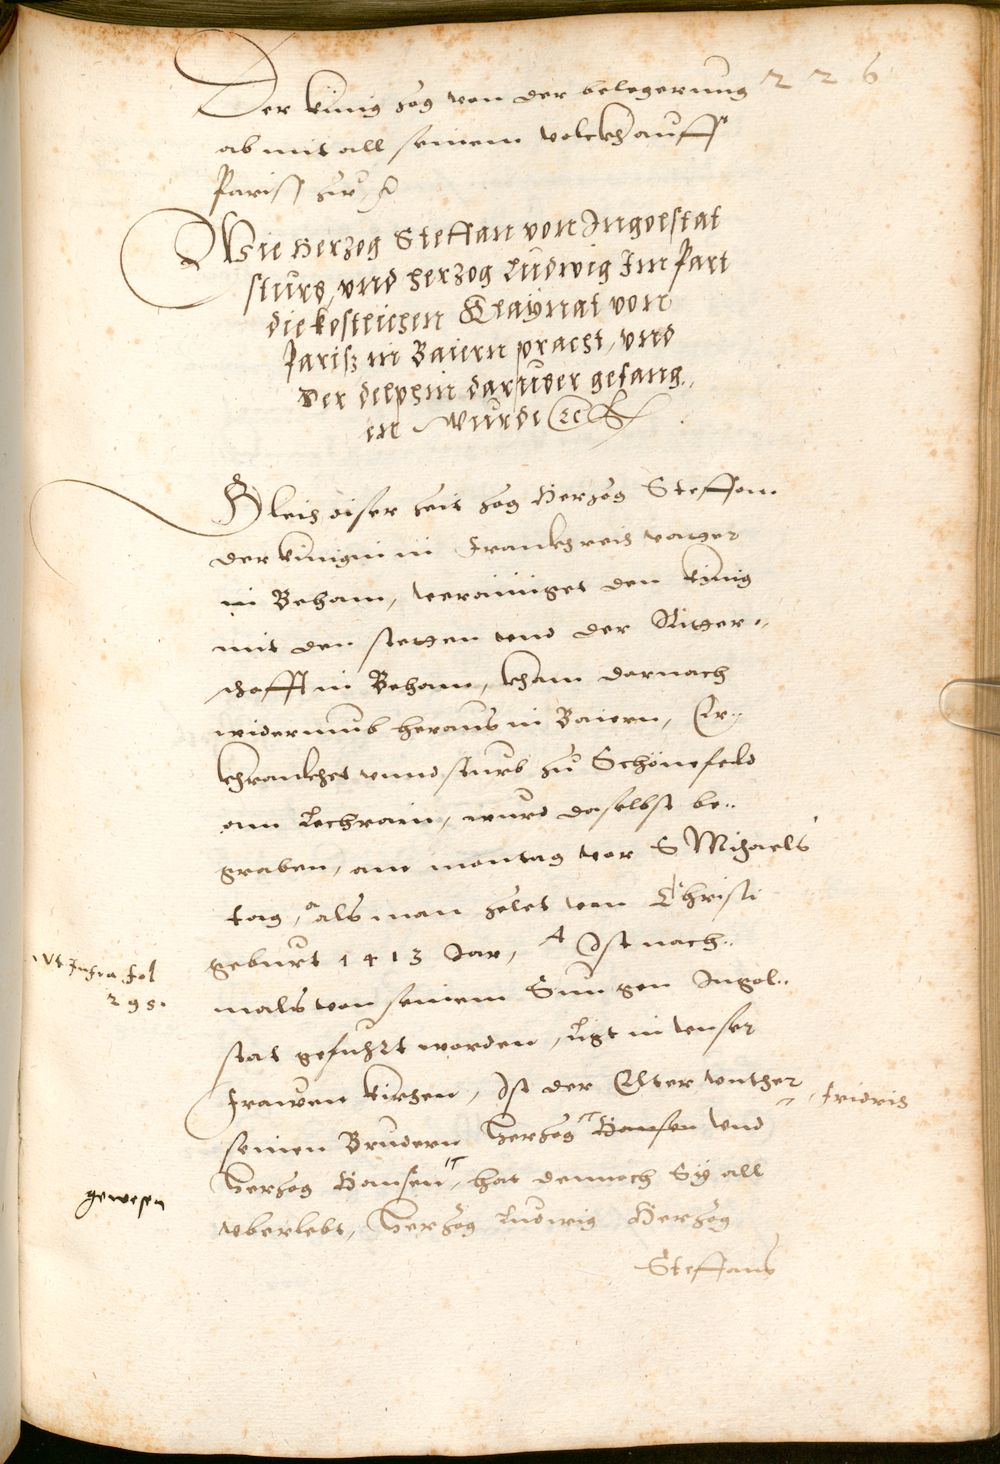 226
Der künig zog von der belegerung
ab mit all seinem volckh auff
Pariss zu ꝛc
Wie Herzog Steffan von Ingolstat
sturb, vnd herzog Ludwig Im Part
die kostlichen Claynat von
Pariß in Baiern pracht, vnd
Der delphin daruber gefang„
en wurde ꝛc
Gleich diser zeit zog Herzog Steffan
der künigin in Franckhreich vatter
in Beham, verainiget den künig
mit den stetten vnd der Ritter„
schafft in Beham, kham darnach
widerumb heraus in Baiern, Er„
khrankhet vnnd sturb zu Schönefeld
am Lechrain, wurd daselbst be„
graben, am montag vor S Michaels
tag, als man zelet von Christi
geburt 1413 Jar, A Ist nach„
mals von seinem Sun gen Ingol„
stat gefuhrt worden, ligt in vnser
Frawen kirchen, Ist der Elter vnther
seinen Brudern Herzog Hansen vnd
Herzog Hansen, hat dennoch Sy all
vberlebt, Herzog Ludwig Herzog
Steffans
vt infra fol
295.
fridrich
gewesen